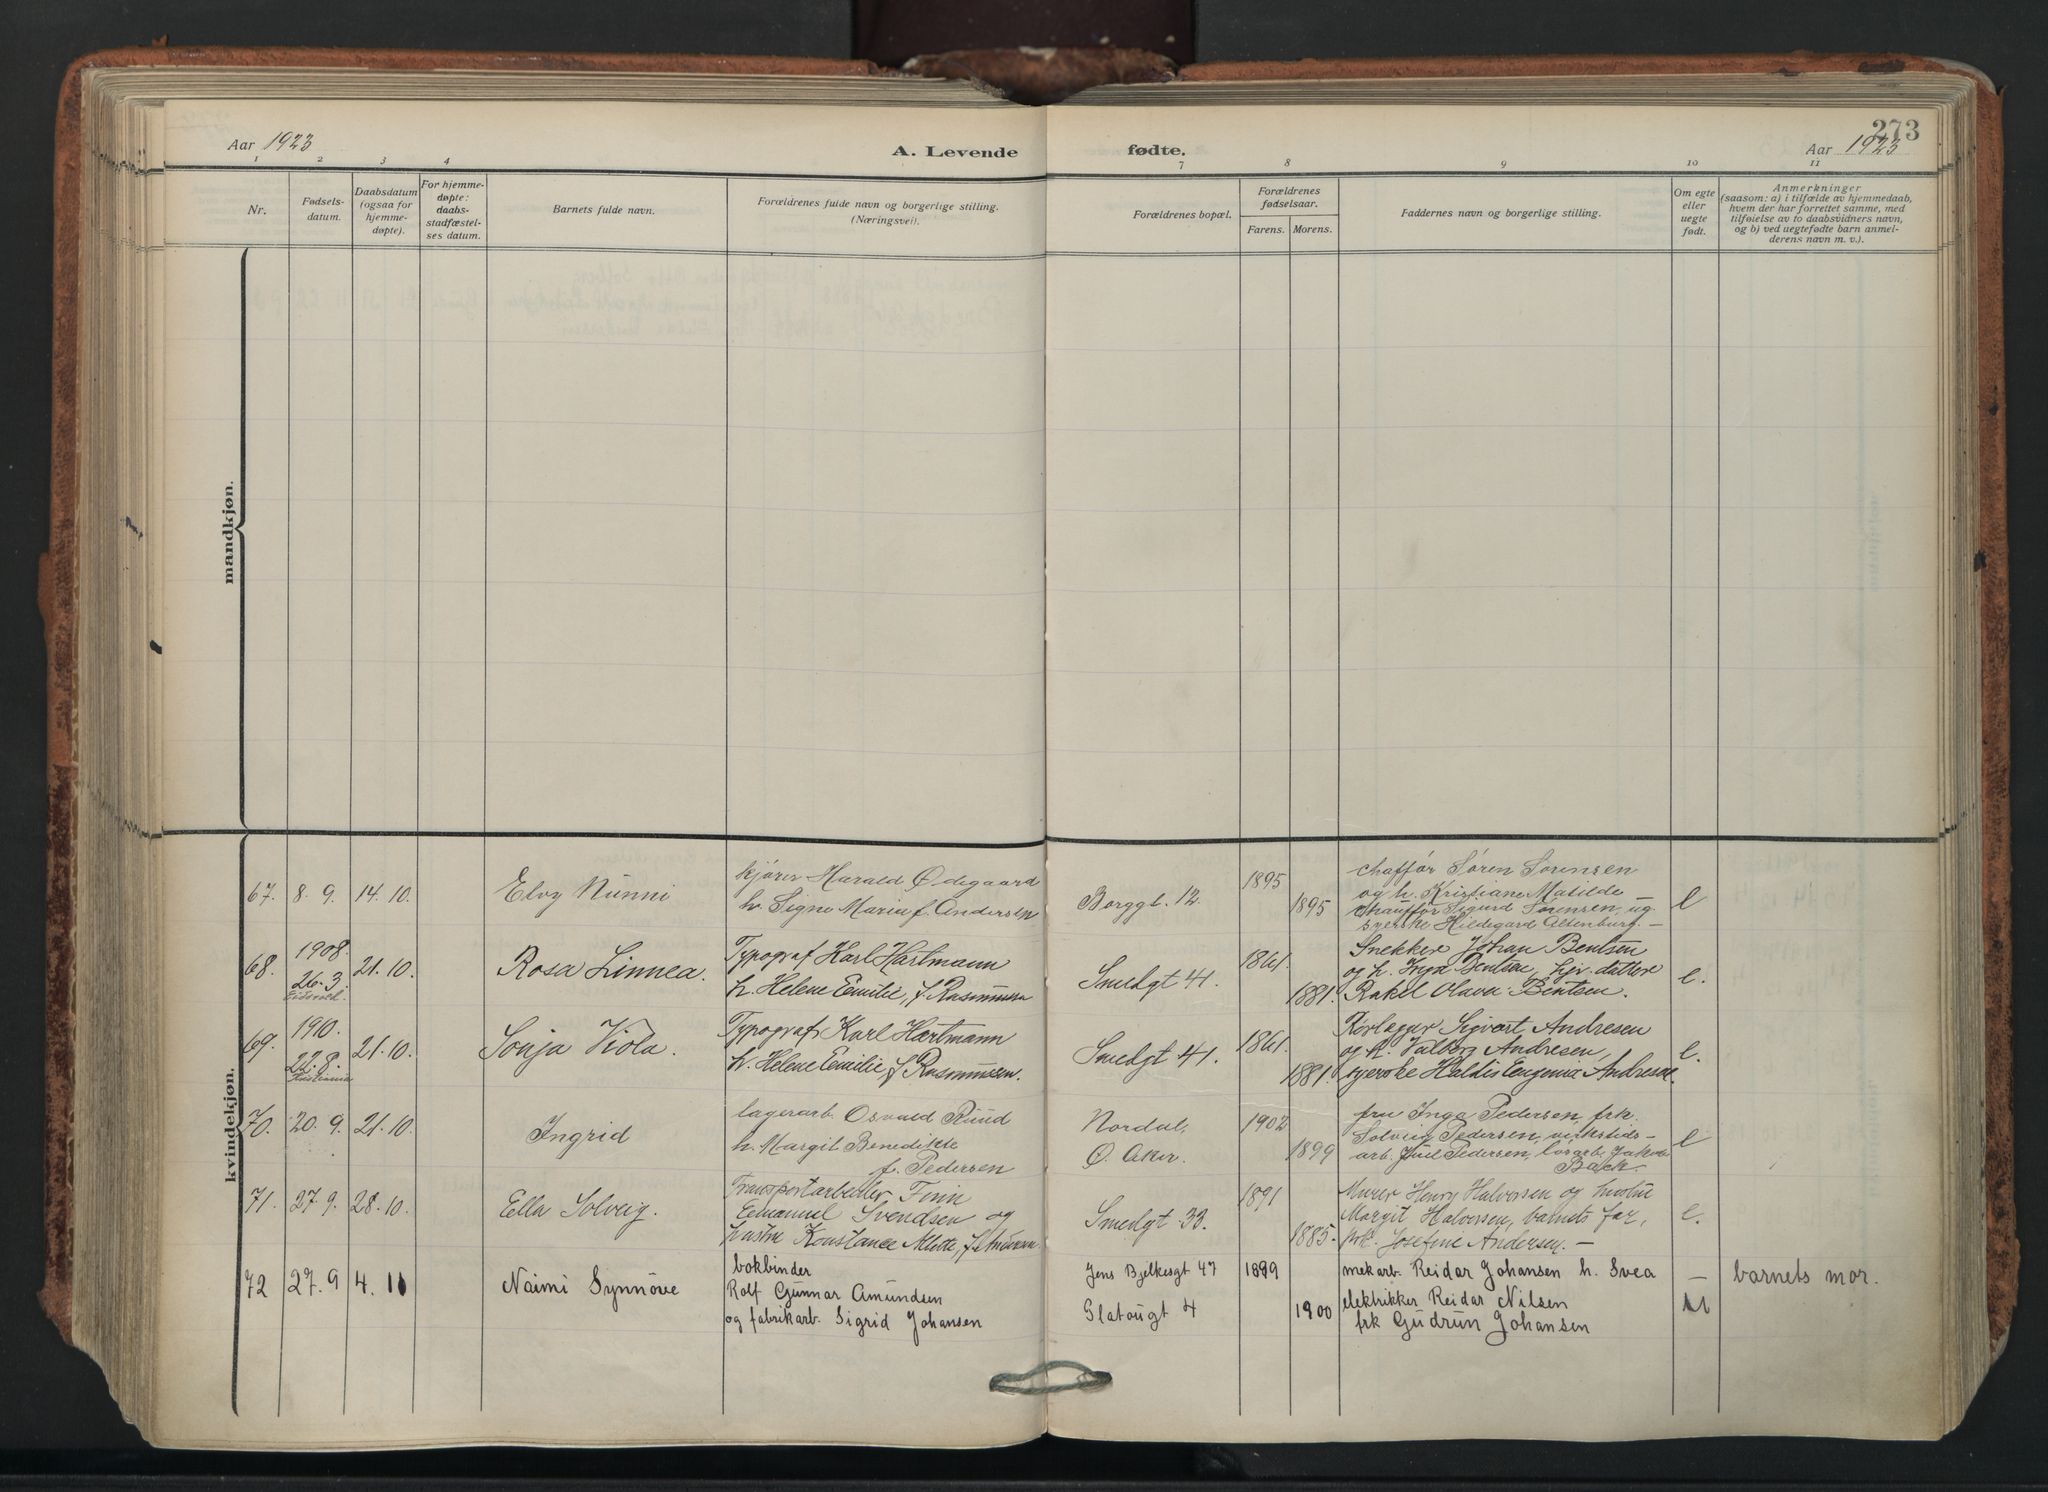 Aar 1923
A. Levende fødte.
273
Aar 1923
1 2 3 4 7 8 9 10 11
Nr.
Fødsels-
datum.
Daabsdatum
(ogsaa for
hjemme-
døpte).
For hjemme-
døpte:
daabs-
stadfæstel-
ses datum.
Barnets fulde navn.
Forældrenes fulde navn og borgerlige stilling.
(Næringsvei).
Forældrenes bopæl.
Forældrenes
fødselsaar.
Farens. Morens.
Faddernes navn og borgerlige stilling.
Om egte
eller
uegte
født.
Anmerkninger
(saasom: a) i tilfælde av hjemmedaab,
hvem der har forrettet samme, med
tilføielse av to daabsvidners navn,
og b) ved uegtefødte barn anmel-
derens navn m. v.).
mandkjøn.
kvindekjøn.
67. 8. 9. 14. 10. Elvy Nunni
kjører Harald Ødegaard
h. Signe Maria f. Andersen
Borggt. 12. 1895 1895
chaffør Søren Sørensen
og h. Kristiane Matilde
chauffør Sigurd Sørensen, ug.
syerske Hildegard Altenburg. –
e
68. 1908. 26. 3. Eidsvold. 21. 10. Rosa Linnea.
Typograf Karl Hartmann
h. Helene Emilie, f. Rasmussen
Smedgt 41. 1861. 1881.
Snekker Johan Bentsen
og h. Bentsen, hjv. datter
Rakel Olava Bentsen.
e.
69. 1910. 22. 8. Kristiania 21. 10. Sonja Viola.
Typograf Karl Hartmann
h. Helene Emilie, f. Rasmussen.
Smedgt 41. 1861. 1881.
Rørlegger Sigvart Andresen
og h. Valborg Andresen,
syerske Haldis Eugenia Andresen.
e.
70. 20. 9. 21. 10. Ingrid
lagerarb. Osvald Ruud
h. Margit Benedikte
f. Pedersen
Nordal,
Ø. Aker. 1902 1899
fru Inga Pedersen, frk.
Solveig Pedersen, verkstids-
arb. Juel Pedersen, løsarb. Jakob
Back.
e
71. 27. 9. 28. 10. Ella Solveig.
Transportarbeider Finn
Emanuel Svendsen og
hustru Konstance Alette, f. Andersen
Smedgt 33. 1891 1885.
Murer Henry Halvorsen og hustru
Margit Halvorsen, barnets far,
frk. Josefine Andersen. –
e.
72 27. 9 4. 11 Naimi Synnöve
bokbinder
Rolf Gunnar Amundsen
og fabrikarb. Sigrid Johansen
Jens Bjelkesgt 47 1899
Slatougt 4 1900
mekarb. Reidar Johansen h. Svea
elektrikker Reidar Nilsen
frk Gudrun Johansen
– barnets mor.